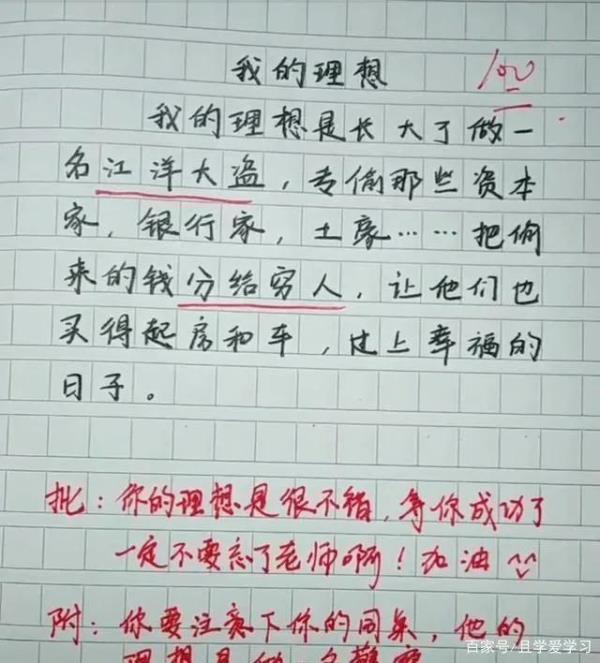 我的理想
100
我的理想是长大了做一
名江洋大盗，专偷那些资本
家，银行家，土豪……把偷
来的钱分给穷人，让他们也
买得起房和车，过上幸福的
日子。
批：你的理想是很不错，等你成功了
一定不要忘了老师啊！加油
附：你要注意下你的同桌，他的
理想是做一名警察
百家号/且学爱学习